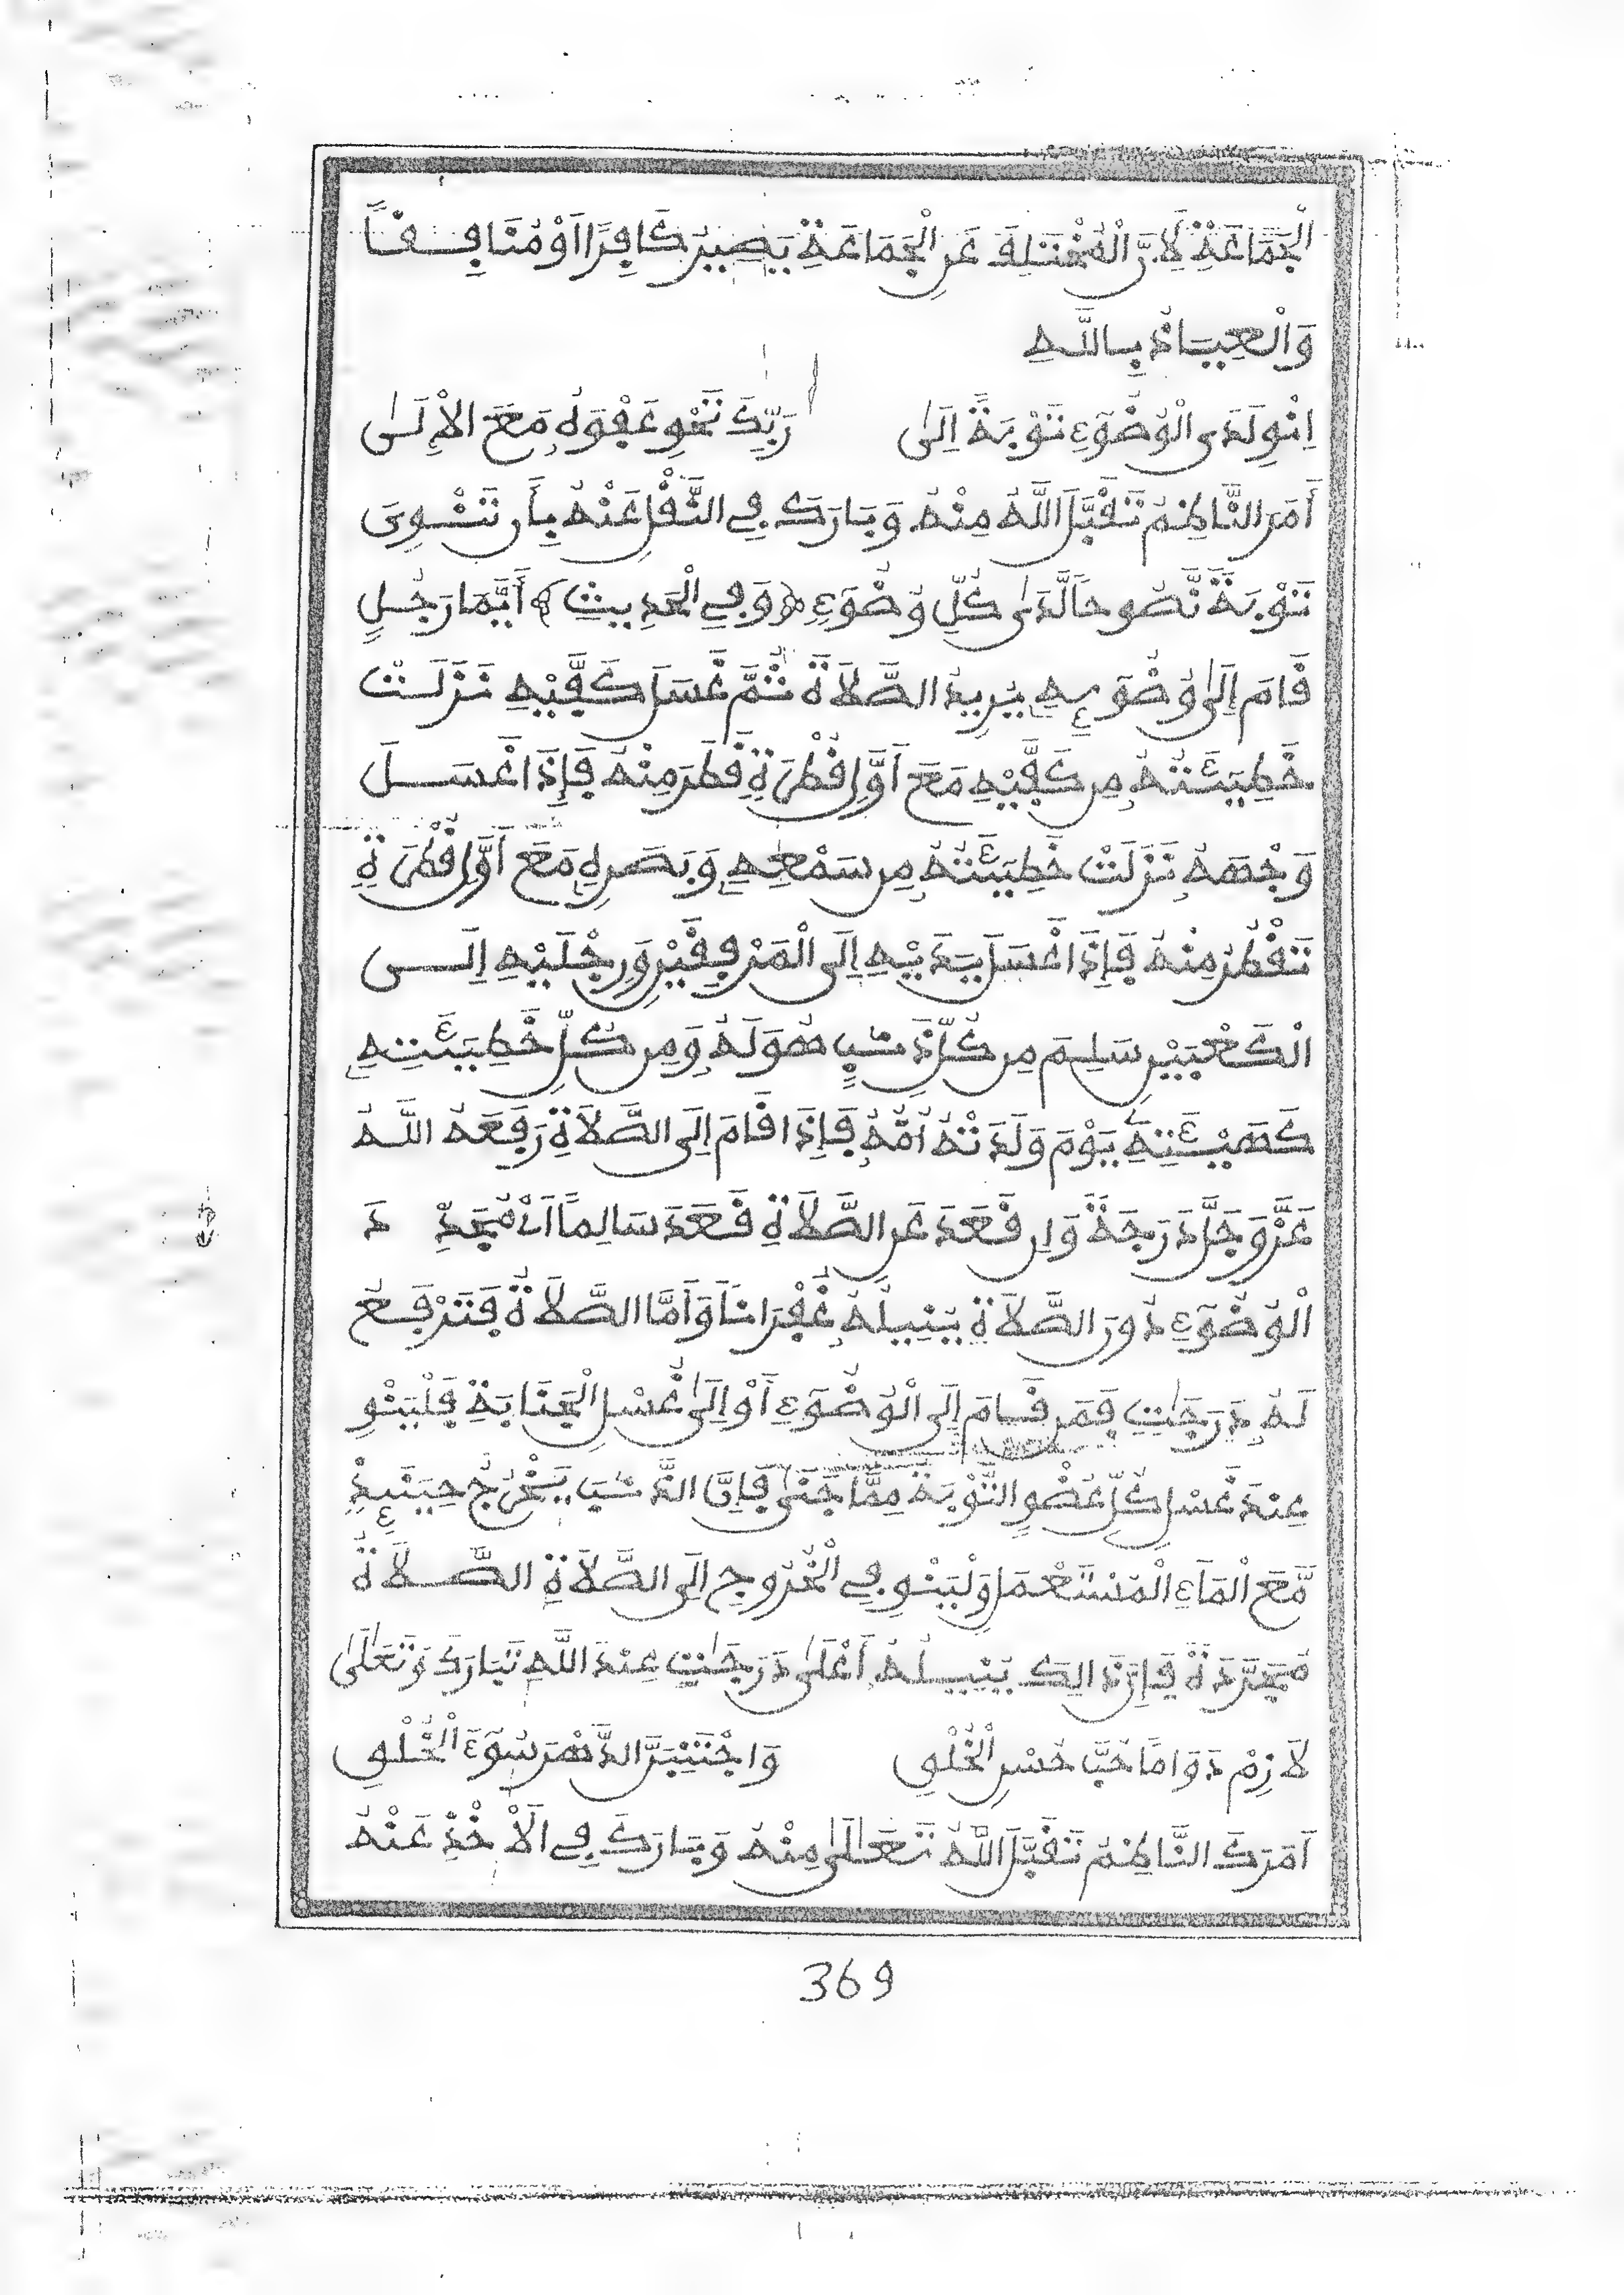 الْجَمَاعَةِ لِأَنَّ الْمُخْتَلِفَ عَنِ الْجَمَاعَةِ يَصِيرُ كَافِرًا اَوْ مُنَافِقًا
وَالْعِيَاذُ بِاللَّهِ
اِنْوِ لَدَى الْوُضُوءِ تَوْبَةً اِلَى رَبِّكَ نَحْوِ عَفْوِهِ مَعَ الْاِلَى
أَمَرَ النَّاظِمُ تَقَبَّلَ اللَّهُ مِنْهُ وَبَارَكَ فِي النَّقْلِ عَنْهُ بِأَن تَنْوِيَ
تَوْبَةً نَّصُوحًا لَّدَى كُلِّ وُضُوءٍ ﴿وَفِي الْحَدِيثِ﴾ أَيُّمَا رَجُلٍ
قَامَ إِلَى وُضُوئِهِ يُرِيدُ الصَّلَاةَ ثُمَّ غَسَلَ كَفَّيْهِ نَزَلَتْ
خَطِيئَتُهُ مِن كَفَّيْهِ مَعَ أَوَّلِ قَطْرَةٍ قَطَرَ مِنْهُ فَإِذَا غَسَلَ
وَجْهَهُ نَزَلَتْ خَطِيئَتُهُ مِن سَمْعِهِ وَبَصَرِهِ مَعَ أَوَّلِ قَطْرَةٍ
تَقْطُرُ مِنْهُ فَإِذَا غَسَلَ يَدَيْهِ إِلَى الْمَرْفِقَيْنِ وَرِجْلَيْهِ إِلَى
الْكَعْبَيْنِ سَلِمَ مِن كُلِّ ذَنبٍ هُوَ لَهُ وَمِن كُلِّ خَطِيئَتِهِ
كَهَيْئَتِهِ يَوْمَ وَلَدَتْهُ أُمُّهُ فَإِذَا قَامَ إِلَى الصَّلَاةِ رَفَعَهُ اللَّهُ
عَزَّ وَجَلَّ دَرَجَةً وَإِن قَعَدَ عَنِ الصَّلَاةِ قَعَدَ سَالِمًا اَنْ مُجَدِّدَ
الْوُضُوءِ دُونَ الصَّلَاةِ يُنِيلُهُ غُفْرَانًا وَأَمَّا الصَّلَاةُ فَتَرْفَعُ
لَهُ دَرَجَاتٍ فَمَن قَامَ إِلَى الْوُضُوءِ أَوْ إِلَى غُسْلِ الْجَنَابَةِ فَلْيَنْوِ
عِنْدَ غَسْلِ كُلِّ عُضْوٍ التَّوْبَةَ مِمَّا جَنَى فَإِنَّ الذَّنبَ يَخْرُجُ حِينَئِذٍ
مَّعَ الْمَاءِ الْمُسْتَعْمَلِ وَلْيَنْوِ فِي الْخُرُوجِ إِلَى الصَّلَاةِ الصَّلَاةَ
مُجَرَّدَةً فَإِنَّ ذَالِكَ يُنِيلُهُ أَعْلَى دَرَجَاتٍ عِنْدَ اللَّهِ تَبَارَكَ وَتَعَالَى
لَازِمْ دَوَامًا حُبَّ حُسْنِ الْخُلْقِ وَاجْتَنِبَنَّ الدَّهْرَ سُوءَ الْخُلْقِ
اَمَرَكَ النَّاظِمُ تَقَبَّلَ اللَّهُ تَعَالَى مِنْهُ وَبَارَكَ فِي الْأَخْذِ عَنْهُ
369